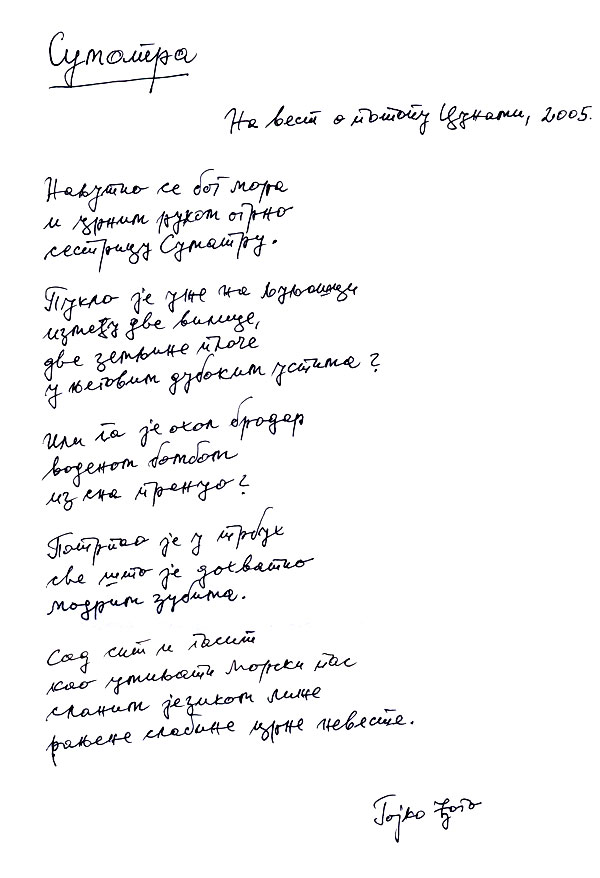 Суматра
На вест о потопу Цунами, 2005.
Накутио се бог мора
и црним руком огрно
сестрицу Суматру.
Пукло је уже на љуљашци
између две вилице,
две земљине плоче
у његовим дубоким устима?
Или га је охол бродар
воденом бомбом
из сна пренуо?
Потрпао је у трбух
све што је дохватио
модрим зубима.
Сад сит и
као уживати морски пас
сланим језиком лиже
рањене слабине црне невесте.
Гојко Ђого